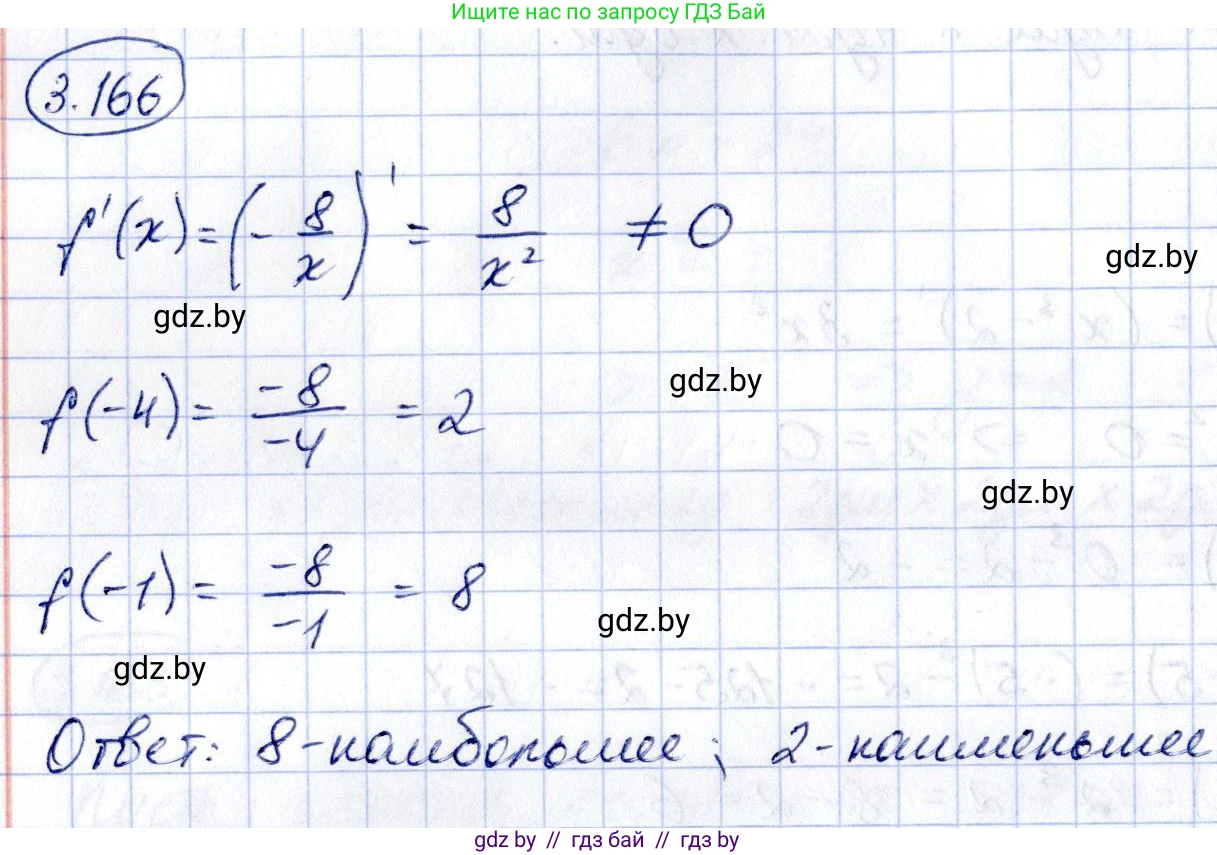 Ищите нас по запросу ГДЗ Бай
3.166
f'(x) = (-8/x)' = 8/x² ≠ 0
gdz.by
gdz.by
f(-4) = -8/-4 = 2
gdz.by
gdz.by
f(-1) = -8/-1 = 8
gdz.by
gdz.by
Ответ: 8 - наибольшее; 2 - наименьшее
gdz.by // гдз бай // gdz.by